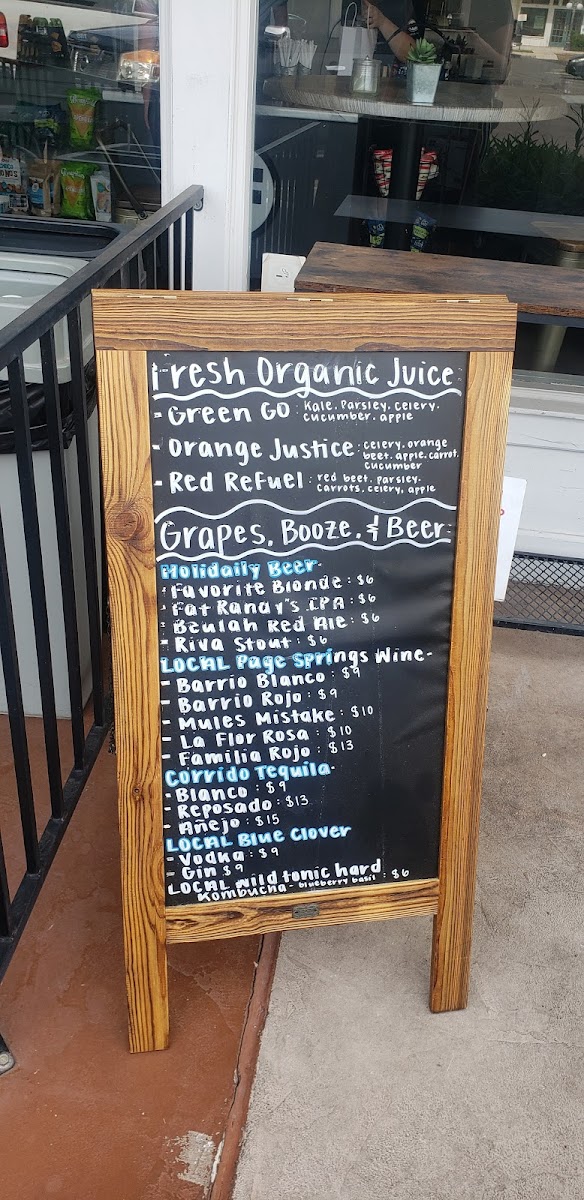 Fresh Organic Juice
- Green Go : Kale. Parsley. celery.
cucumber. apple
- Orange Justice : celery. orange
beet. apple. carrot.
cucumber
- Red Refuel : red beet. parsley.
carrots, celery, apple
Grapes, Booze, & Beer:
Holidaily Beer-
- Favorite Blonde : $6
- Fat Randy's IPA : $6
- Beulah Red Ale : $6
- Riva Stout : $6
LOCAL Page Springs Wine-
- Barrio Blanco : $9
- Barrio Rojo : $9
- Mules Mistake : $10
- La Flor Rosa : $10
- Familia Rojo : $13
Corrido Tequila-
- Blanco : $9
- Reposado : $13
- Añejo : $15
LOCAL Blue Clover
- Vodka : $9
- Gin $9
LOCAL wild tonic hard
Kombucha - blueberry basil : $6